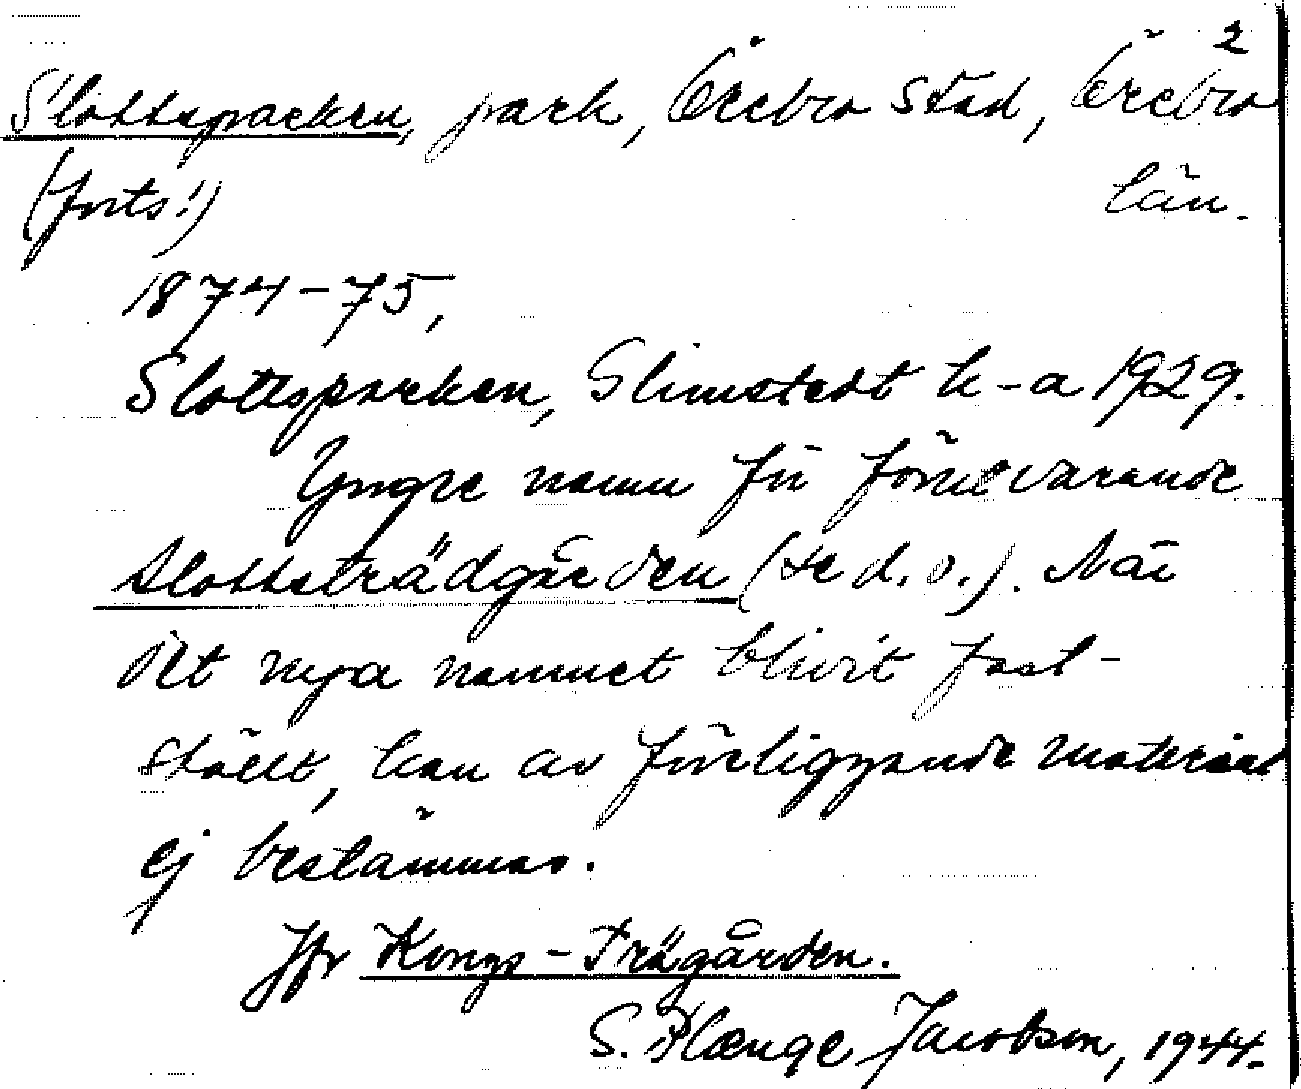 2
Slottsparken, park, Örebro stad, Örebro
(forts!) län.
1874-75,
Slottsparken, Glimstedt k-a 1929.
Yngre namn för förutvarande
Slottsträdgården (se d. o.). När
det nya namnet blivit fast-
ställt, kan av föreliggande material
ej bestämmas.
Jfr Kongs-Trägården.
S. Plænge Jacobson, 1944.